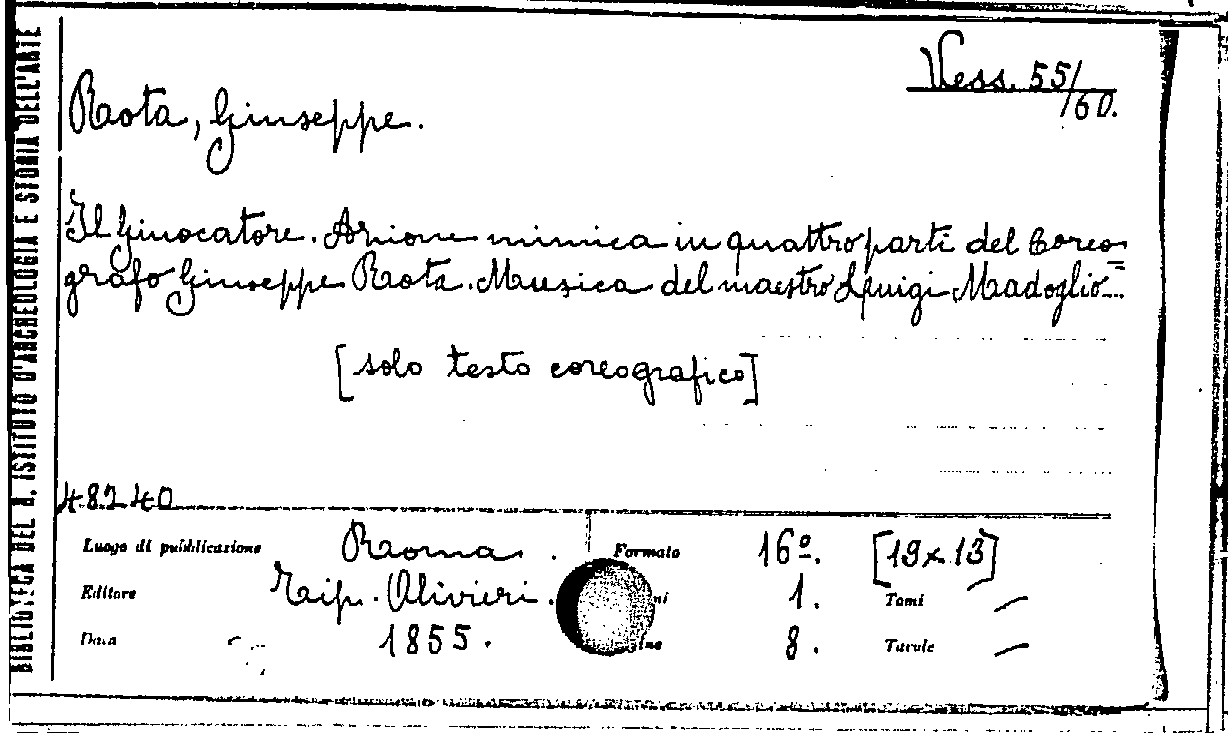 BIBLIOTECA DEL R. ISTITUTO D'ARCHEOLOGIA E STORIA DELL'ARTE
Vess. 55/
/60.
Rota, Giuseppe.
Il Giuocatore. Azione mimica in quattro parti del Coreo=
grafo Giuseppe Rota. Musica del maestro Luigi Madoglio...
[solo testo coreografico]
48240
Luogo di pubblicazione Roma. Formato 16º. [19x13]
Editore Tip. Olivieri. 1. Tomi —
Data 1855. 8. Tavole —